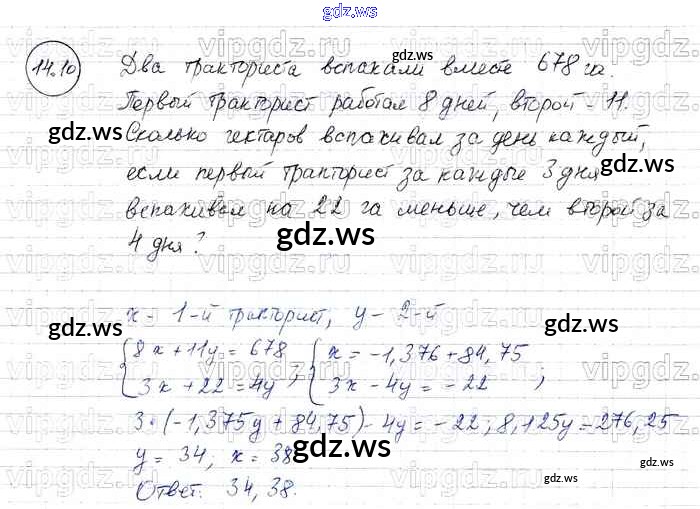 gdz.ws
14.10 Два тракториста вспахали вместе 678 га.
Первый тракторист работал 8 дней, второй - 11.
Сколько гектаров вспахивал за день каждый,
если первый тракторист за каждые 3 дня
вспахивал на 22 га меньше, чем второй за
4 дня?
x - 1-й тракторист, y - 2-й
{8x + 11y = 678 ; {x = -1,376 + 84,75
{3x + 22 = 4y {3x - 4y = -22 ;
3·(-1,375y + 84,75) - 4y = -22; 8,125y = 276,25
y = 34; x = 38
Ответ: 34, 38.